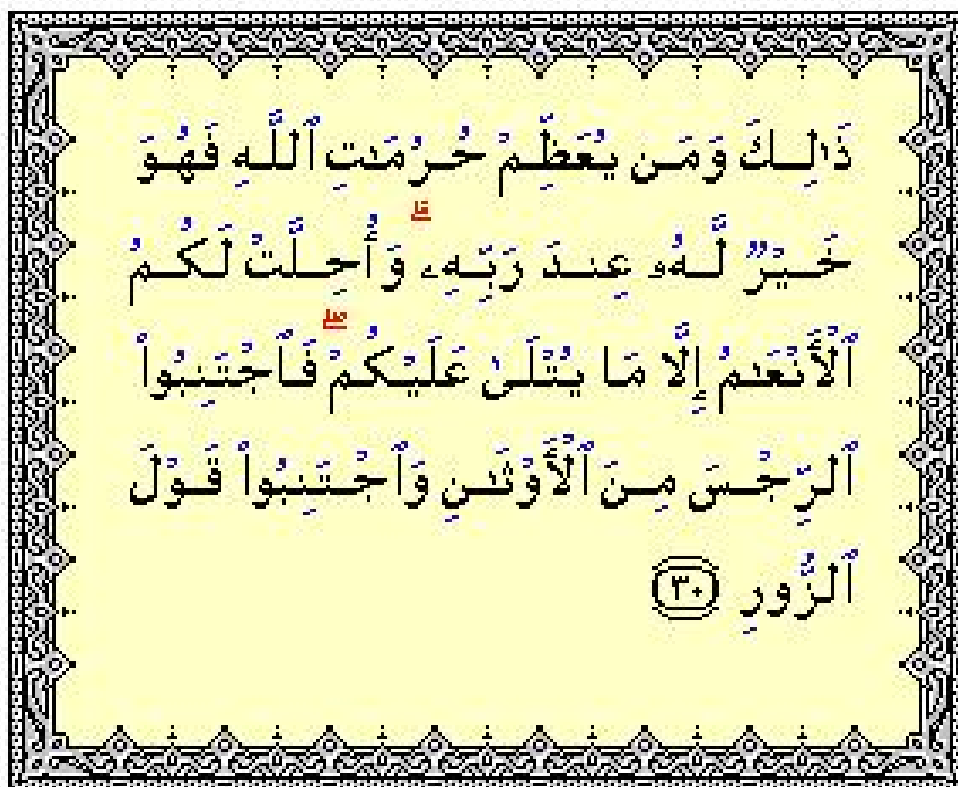 ذَٰلِكَ وَمَن يُعَظِّمْ حُرُمَـٰتِ ٱللَّهِ فَهُوَ
خَيْرٌ لَّهُۥ عِندَ رَبِّهِۦ ۗ وَأُحِلَّتْ لَكُمُ
ٱلْأَنْعَـٰمُ إِلَّا مَا يُتْلَىٰ عَلَيْكُمْ ۖ فَٱجْتَنِبُوا۟
ٱلرِّجْسَ مِنَ ٱلْأَوْثَـٰنِ وَٱجْتَنِبُوا۟ قَوْلَ
ٱلزُّورِ ٣٠